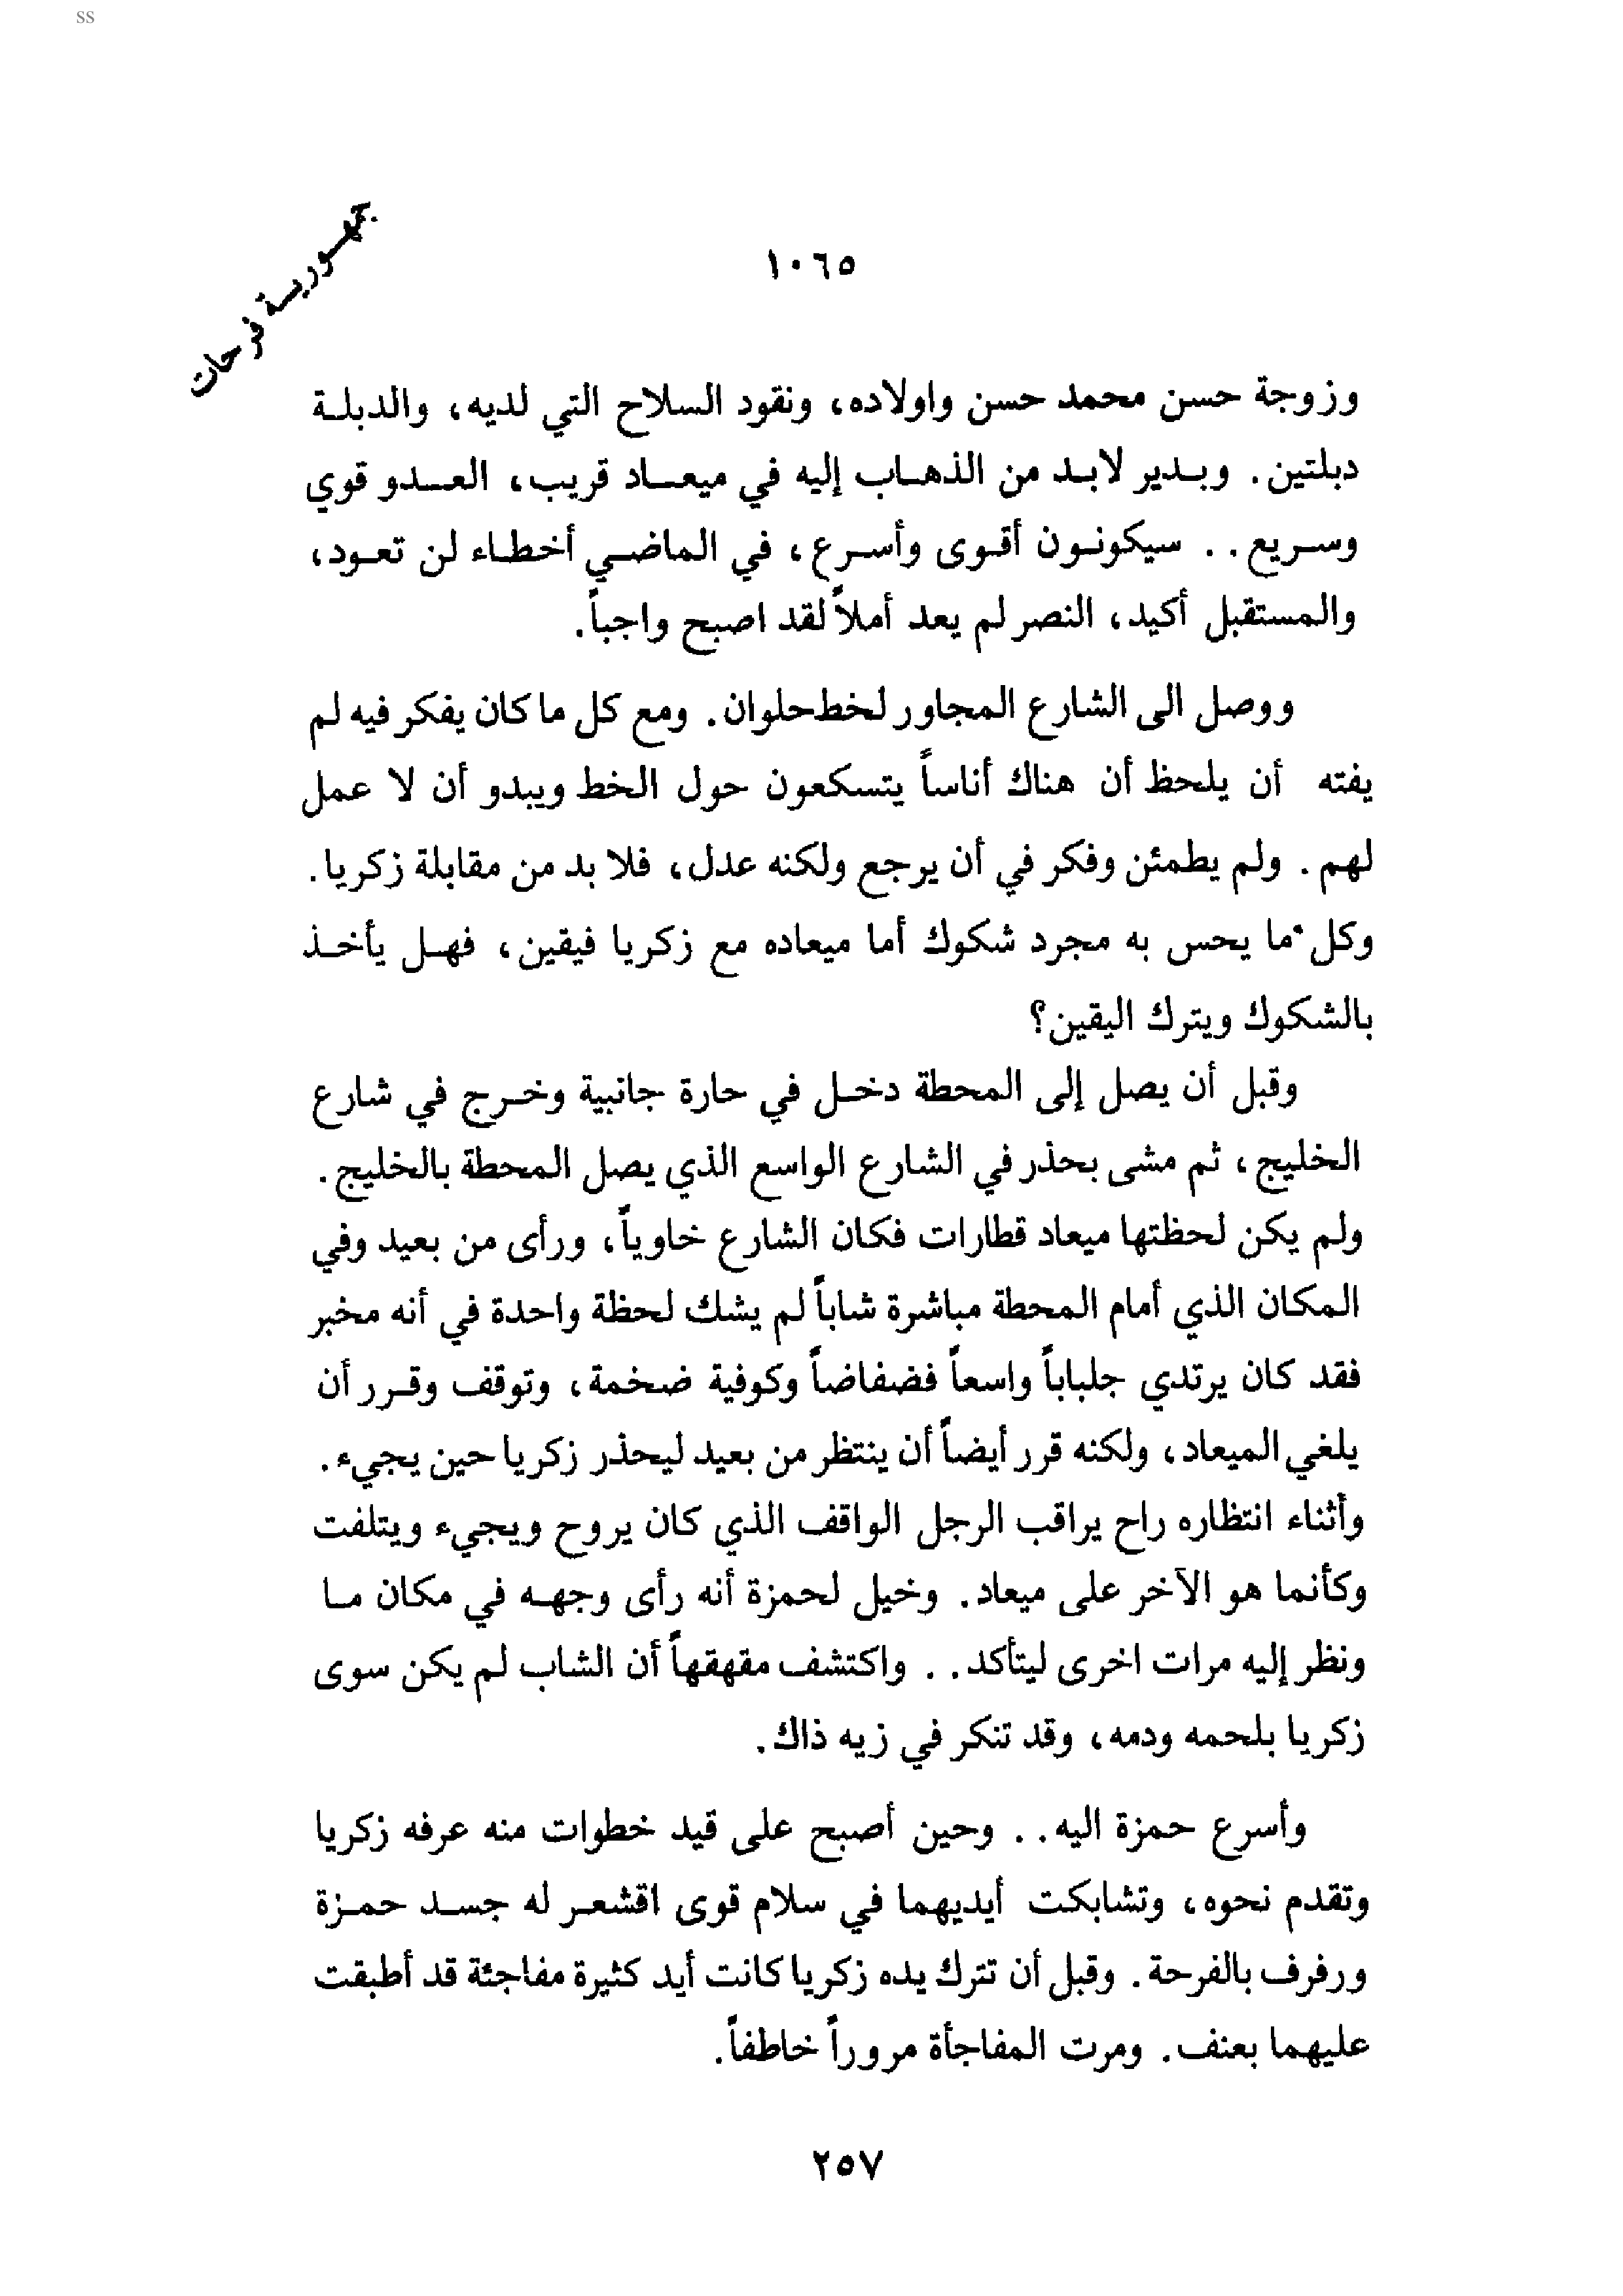 ss
جمهورية فرحات
١٠٦٥
وزوجة حسن محمد حسن واولاده، ونقود السلاح التي لديه، والدبلة
دبلتين. وبدير لابد من الذهاب إليه في ميعاد قريب، العدو قوي
وسريع.. سيكونون أقوى وأسرع، في الماضي أخطاء لن تعود،
والمستقبل أكيد، النصر لم يعد أملاً لقد اصبح واجباً.
ووصل الى الشارع المجاور لخط حلوان. ومع كل ما كان يفكر فيه لم
يفته أن يلحظ أن هناك أناساً يتسكعون حول الخط ويبدو أن لا عمل
لهم. ولم يطمئن وفكر في أن يرجع ولكنه عدل، فلا بد من مقابلة زكريا.
وكل ما يحس به مجرد شكوك أما ميعاده مع زكريا فيقين، فهل يأخذ
بالشكوك ويترك اليقين؟
وقبل أن يصل إلى المحطة دخل في حارة جانبية وخرج في شارع
الخليج، ثم مشى بحذر في الشارع الواسع الذي يصل المحطة بالخليج.
ولم يكن لحظتها ميعاد قطارات فكان الشارع خاوياً، ورأى من بعيد وفي
المكان الذي أمام المحطة مباشرة شاباً لم يشك لحظة واحدة في أنه مخبر
فقد كان يرتدي جلباباً واسعاً فضفاضاً وكوفية ضخمة، وتوقف وقرر أن
يلغي الميعاد، ولكنه قرر أيضاً أن ينتظر من بعيد ليحذر زكريا حين يجيء.
وأثناء انتظاره راح يراقب الرجل الواقف الذي كان يروح ويجيء ويتلفت
وكأنما هو الآخر على ميعاد. وخيل لحمزة أنه رأى وجهه في مكان ما
ونظر إليه مرات اخرى ليتأكد.. واكتشف مقهقهاً أن الشاب لم يكن سوى
زكريا بلحمه ودمه، وقد تنكر في زيه ذاك.
وأسرع حمزة اليه.. وحين أصبح على قيد خطوات منه عرفه زكريا
وتقدم نحوه، وتشابكت أيديهما في سلام قوى اقشعر له جسد حمزة
ورفرف بالفرحة. وقبل أن تترك يده زكريا كانت أيد كثيرة مفاجئة قد أطبقت
عليهما بعنف. ومرت المفاجأة مروراً خاطفاً.
٢٥٧